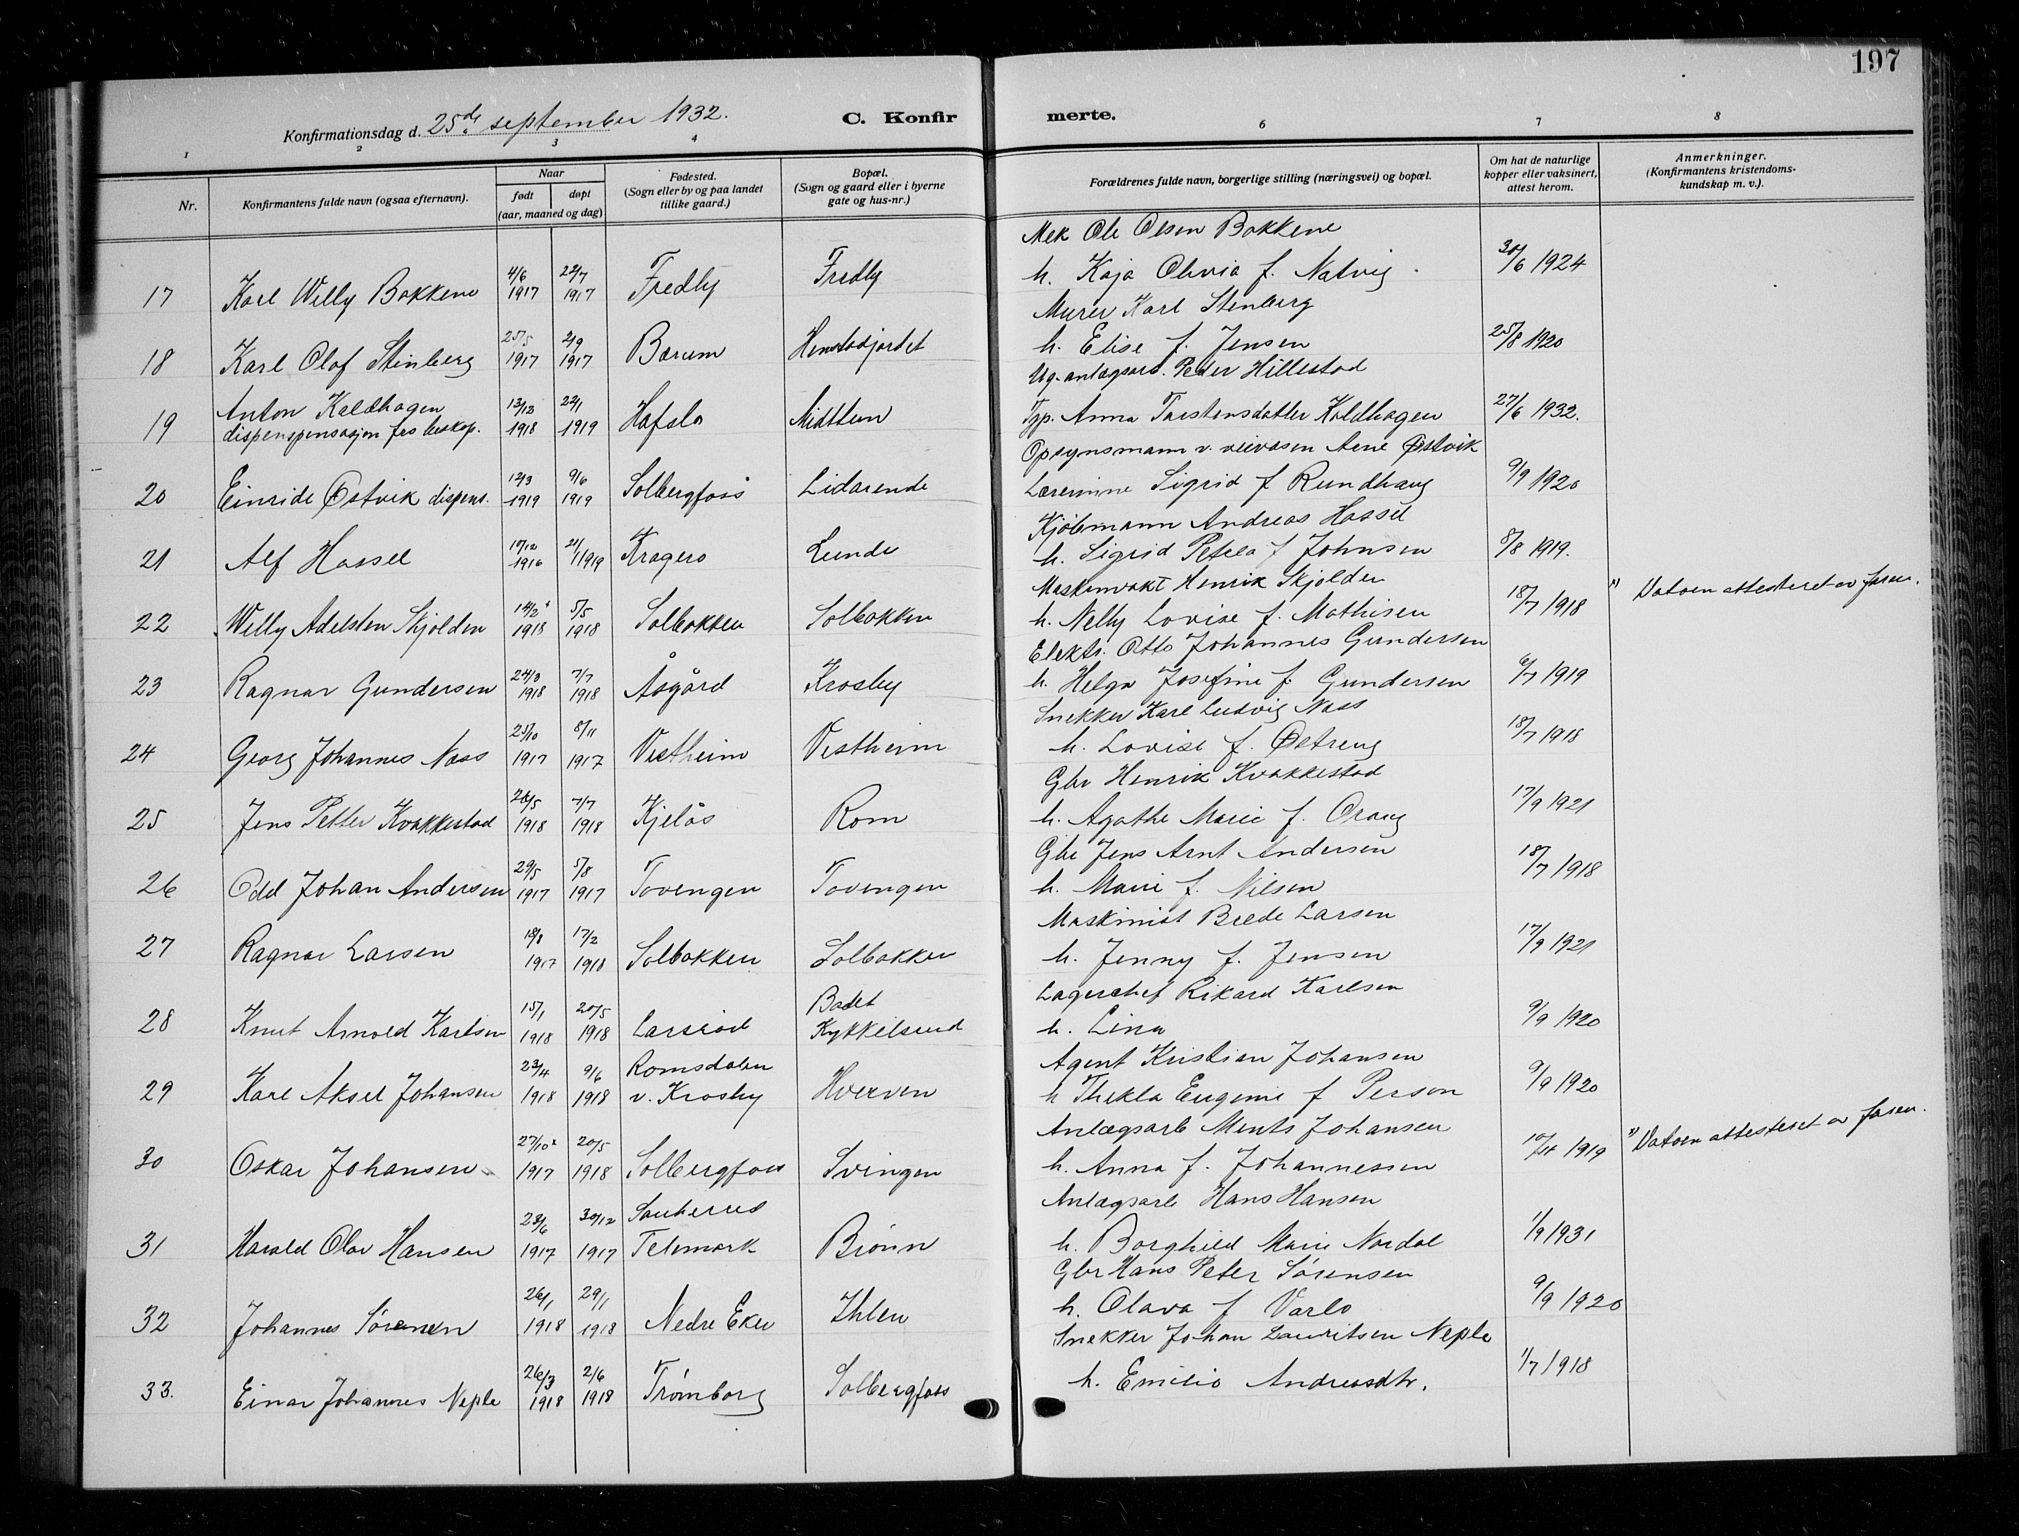 197
Konfirmationsdag d. 25de september 1932.
C. Konfirmerte.
1 2 3 4 6 7 8
Nr.
Konfirmantens fulde navn (ogsaa efternavn).
Naar
født døpt
(aar, maaned og dag)
Fødested.
(Sogn eller by og paa landet
tillike gaard.)
Bopæl.
(Sogn og gaard eller i byerne
gate og hus-nr.)
Forældrenes fulde navn, borgerlige stilling (næringsvei) og bopæl.
Om hat de naturlige
kopper eller vaksinert,
attest herom.
Anmerkninger.
(Konfirmantens kristendoms-
kundskap m. v.).
Mek Ole Olsen Bakkene
17 Karl Willy Bakkene 4/6 1917 22/7 1917 Fredly Fredly h. Kaja Olivia f. Natvig. 30/6 1924
Murer Karl Stenberg
18 Karl Olof Stenberg 25/5 1917 2/9 1917 Bærum h. Elise f. Jensen 25/8 1920
Ug. anlægsarb. Peder Hillestad
19 Anton Kaldhagen 12/12 1918 22/1 1919 Hafslo Midttun Tjp. Anna Torstensdatter Kaldhagen 27/6 1932.
Opsynsmann v. veivæsen Arne Østvik
20 Einride Østvik dispens. 12/3 1919 9/6 1919 Solbergfoss Lidarende Lærerinne Sigrid f Rundhaug 9/9 1920
Kjøbmann Andreas Hassel
21 Alf Hassel 1916 21/1 1919 Kragerø Lunde h. Sigrid Petrea f Johnsen 8/8 1919.
Maskinvakt Henrik Skjolden
22 Willy Adelsten Skjolden 14/2 1918 5/5 1918 Solbakken Solbakken h. Nelly Lovise f. Mathisen 18/7 1918 Datoen attesteret av faren.
Elektr. Otto Johannes Gundersen
23 Ragnar Gundersen 24/3 1918 7/7 1918 Åsgård Krosby h. Helga Josefine f. Gundersen 6/7 1919
Snekker Karl Ludvig Nass
24 Georg Johannes Nass 25/10 1917 8/11 1917 Vestheim Vestheim h. Lovise f. Østreng 18/7 1918
Gbr Henrik Kvakkestad
25 Jens Petter Kvakkestad 26/5 1918 7/7 1918 Kjelås Rom h. Agathe Marie f. Oraug 17/9 1921
Gbr Jens Arnt Andersen
26 Odd Johan Andersen 29/5 1917 5/8 1917 Tovengen Tovengen h. Marie f. Nilsen 18/7 1918
Maskinist Brede Larsen
27 Ragnar Larsen 1917 17/2 1918 Solbakken Solbakken h. Jenny f. Jensen 17/9 1921
Lagerchef Rikard Karlsen
28 Knut Arnold Karlsen 15/1 1918 20/5 1918 Badet Kykkelsrud h. Lina 9/9 1920
Agent Kristian Johansen
29 Karl Aksel Johansen 23/4 1918 9/6 1918 Romsdalen v. Krosby Hverven h Thekla Eugenie f Person 9/9 1920
Anlægsarb Ments Johansen
30 Oskar Johansen 27/10 1917 20/5 1918 Solbergfoss Svingen h. Anna f. Johannessen 1919 Datoen attesteret av faren.
Anlægsarb Hans Hansen
31 Harald Olav Hansen 23/6 1917 30/12 1917 Sauherad Telemark Brønn h. Borghild Marie Nordal 1/9 1931
Gbr Hans Peter Sørensen
32 Johannes Sørensen 26/1 1918 29/1 1918 Nedre Eker Ihlen h. Olava f Varlo 9/9 1920
Snekker Johan Lauritsen Neple
33. Einar Johannes Neple 26/3 1918 2/6 1918 Trømborg Solbergfoss h. Emilie Andreasdtr. 1/7 1918